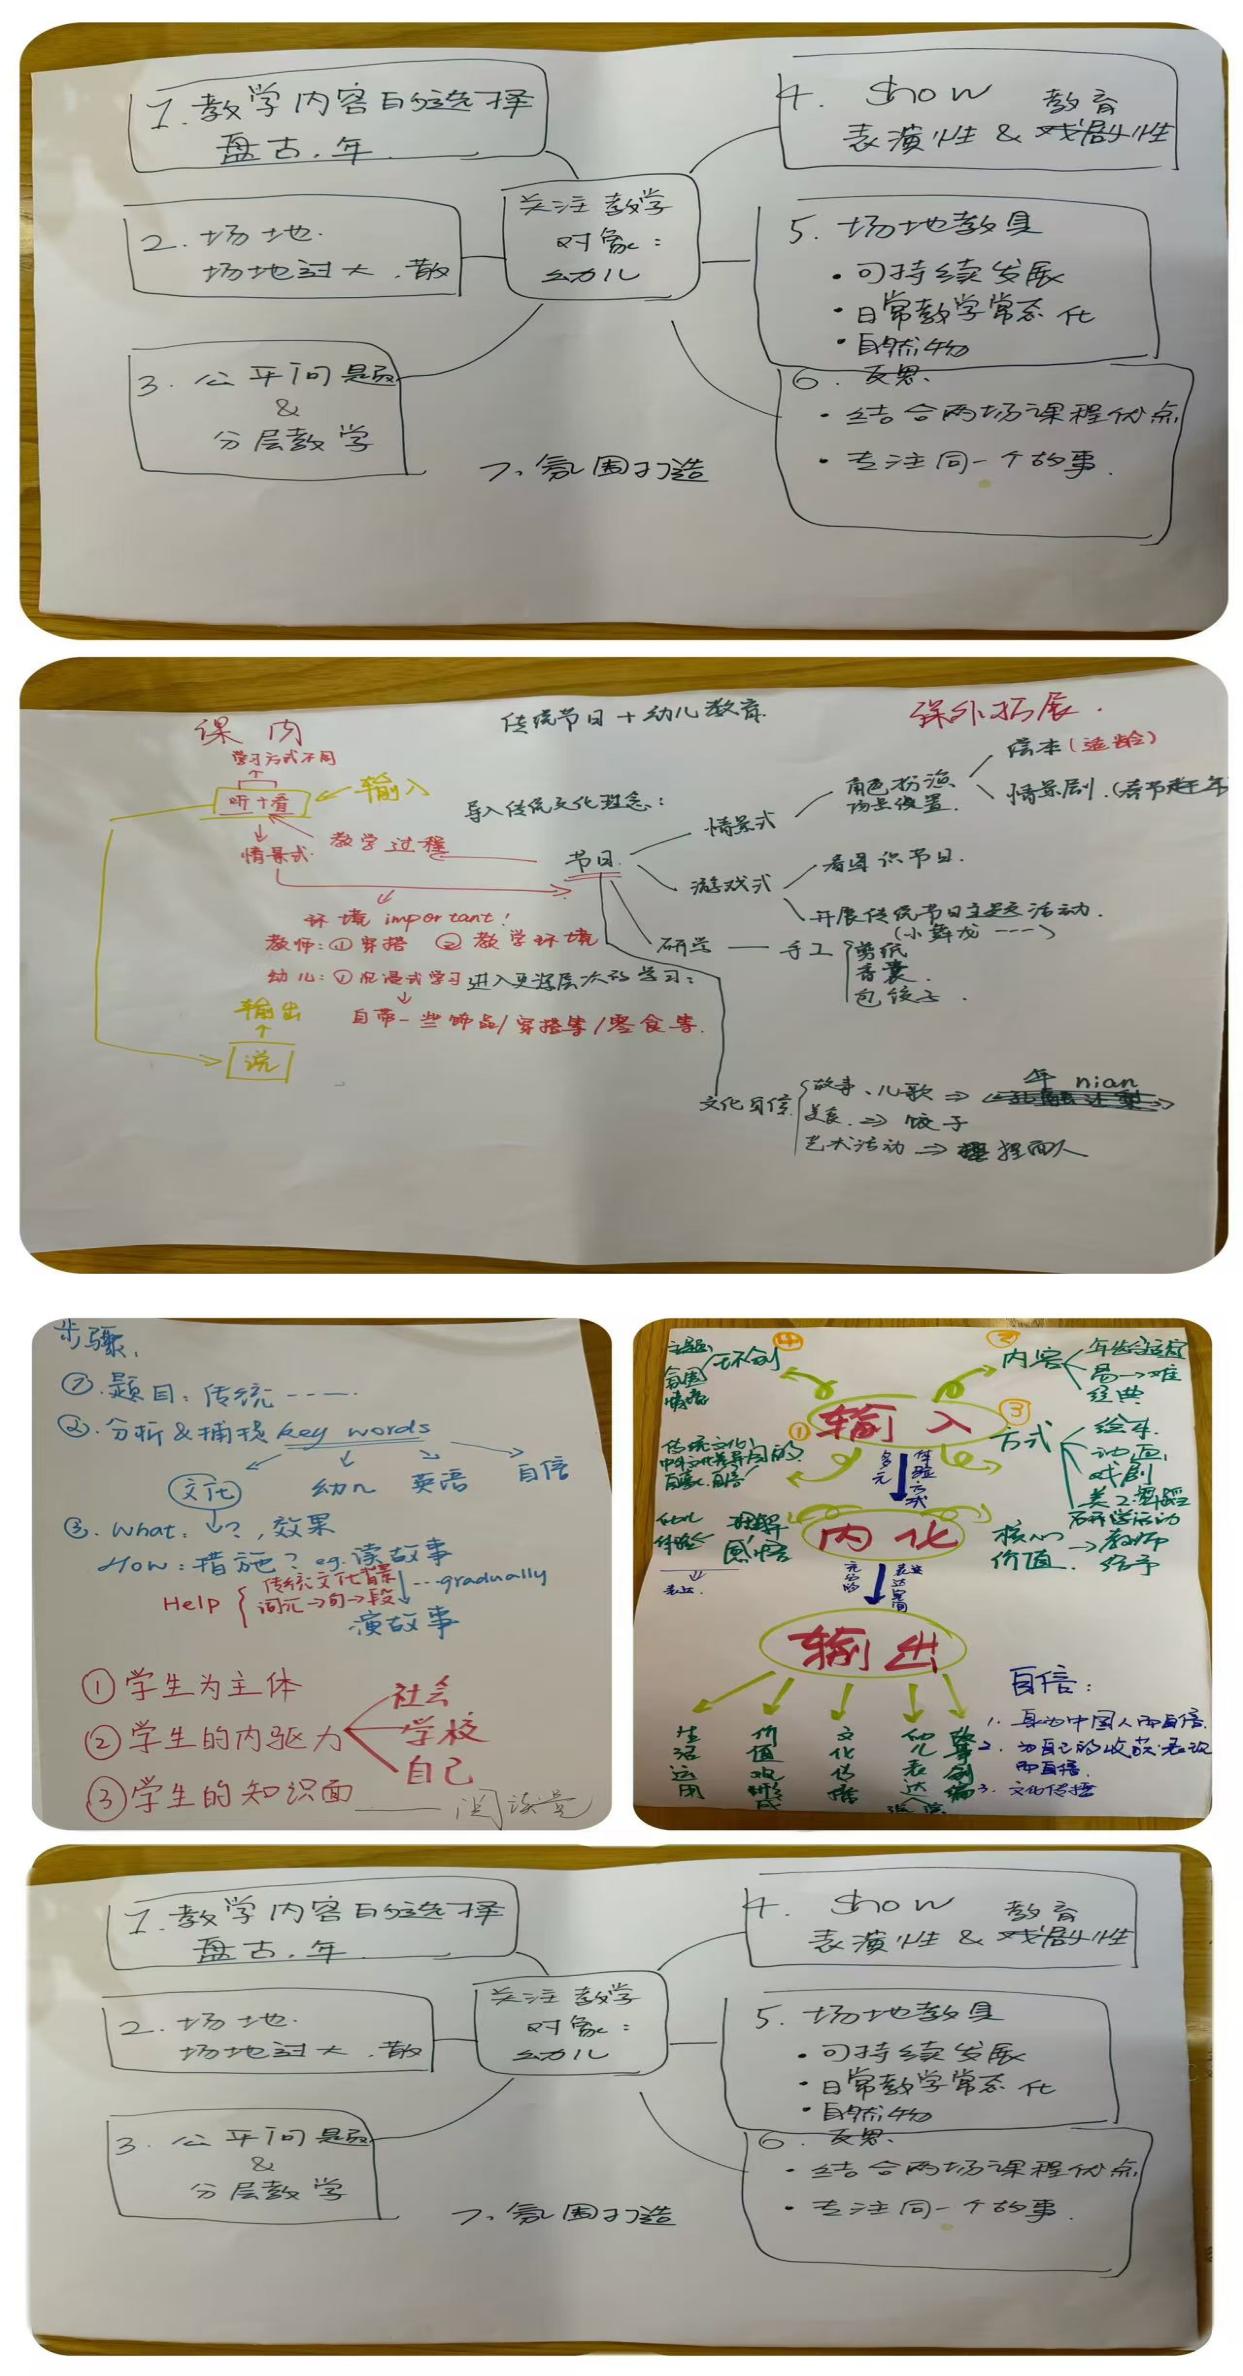 1. 教学内容的选择
盘古、年
2. 场地.
场地过大、散
3. 公平问题
&
分层教学
关注教学
对象：
幼儿
4. show 教育
表演性 & 戏剧性
5. 场地教具
· 可持续发展
· 日常教学常态化
· 自然物
6. 反思、
· 结合两场课程优点
· 专注同一个故事.
7、氛围打造
课内
传统节日 + 幼儿教育
课外拓展.
学习方式不同
听+看
输入
情景式
教学过程
环境 important!
教师: ① 穿搭 ② 教学环境
幼儿: ① 沉浸式学习 进入更深层次的学习:
自带一些饰品/穿搭等/零食等.
输出
说
导入传统文化理念:
节日.
情景式
角色扮演
场景设置.
绘本 (适龄)
情景剧. (春节赶年
游戏式
看图识节日.
开展传统节日主题活动.
(小舞龙 ----)
研学 — 手工
剪纸
香囊.
包饺子.
文化自信
故事、儿歌 ⇒
年 nian
美食. ⇒ 饺子
艺术活动 ⇒ 捏面人
步骤,
①. 题目: 传统 ----.
②. 分析&捕捉 key words
文化 幼儿 英语 自信
③. What: ?, 效果
How: 措施? eg. 读故事
Help 传统文化背景 ...gradually
词汇→句→段
演故事
① 学生为主体
② 学生的内驱力
社会
学校
自己
③ 学生的知识面 —— 阅读量
④
主题,
氛围
情境
环创
②
内容
年龄适宜
易→难
经典
输入
①
③
方式
绘本.
动画
戏剧
美工舞蹈
研学活动
多元
体验方式
内化
理解
感悟
体验
表达.
核心
价值
→教师
给予
输出
生活运用
价值观形成
文化传播
幼儿表达
故事创编
自信:
1. 身为中国人而自信.
2. 为自己的收获、表现
而自信.
3. 文化传播
1. 教学内容的选择
盘古、年
2. 场地.
场地过大、散
3. 公平问题
&
分层教学
关注教学
对象：
幼儿
4. show 教育
表演性 & 戏剧性
5. 场地教具
· 可持续发展
· 日常教学常态化
· 自然物
6. 反思、
· 结合两场课程优点
· 专注同一个故事.
7、氛围打造